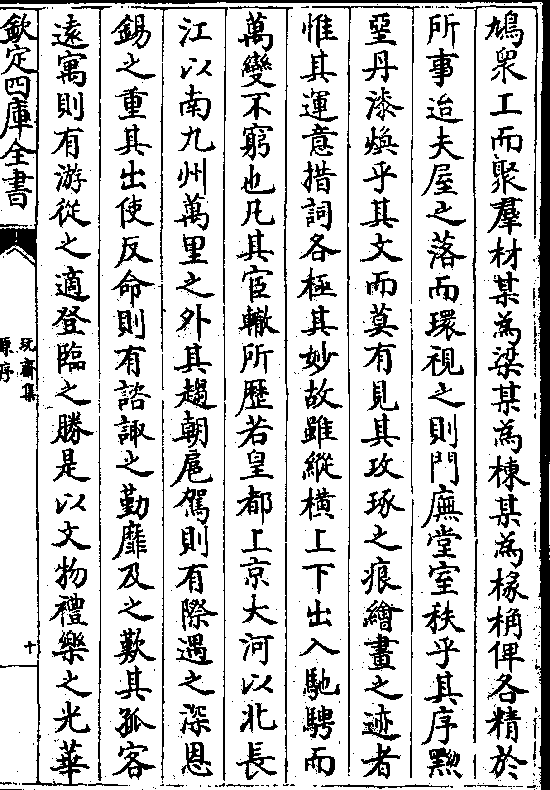 鳩衆工而聚羣材某為梁某為棟某為椽桷俾各精於
所事迨夫屋之落而環視之則門廡堂室秩乎其序黝
堊丹漆煥乎其文而莫有見其攻琢之痕繪畫之迹者
惟其運意措詞各極其妙故雖縱橫上下出入馳騁而
萬變不窮也凡其宦轍所歷若皇都上京大河以北長
江以南九州萬里之外其趨朝扈駕則有際遇之深恩
錫之重其出使反命則有諮諏之勤靡及之歎其孤客
遠寓則有游從之適登臨之勝是以文物禮樂之光華
欽定四庫全書
玩齋集
原序
十